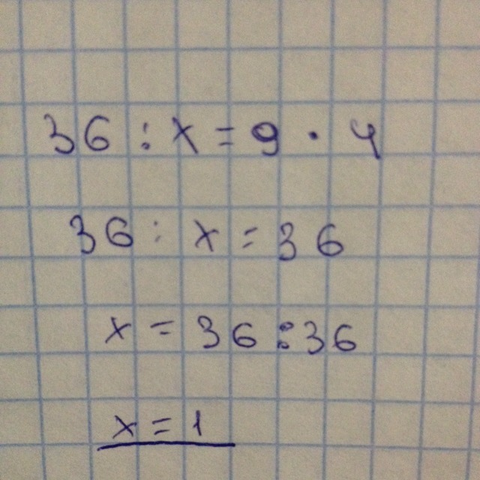 36 : x = 9 · 4
36 : x = 36
x = 36 : 36
x = 1